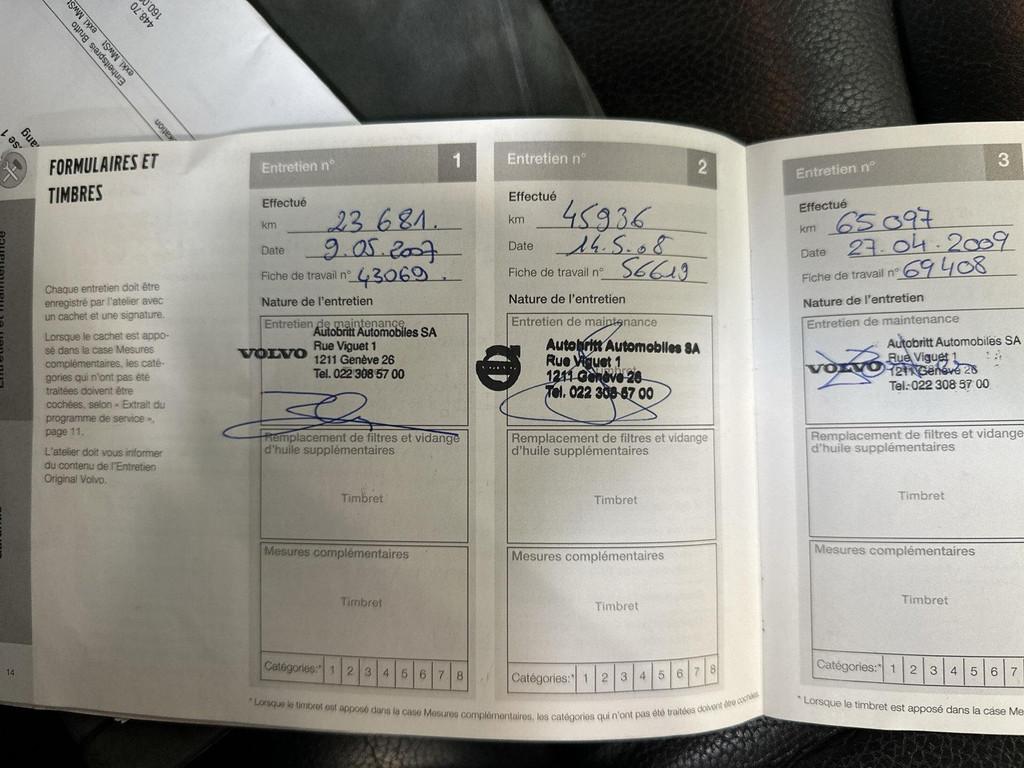 448.70
160.0
exkl. MwSt
Einheitspreis Brutto
exkl. MwSt
se 1
FORMULAIRES ET
TIMBRES
Chaque entretien doit être
enregistré par l'atelier avec
un cachet et une signature.
Lorsque le cachet est appo-
sé dans la case Mesures
complémentaires, les caté-
gories qui n'ont pas été
traitées doivent être
cochées, selon « Extrait du
programme de service »,
page 11.
L'atelier doit vous informer
du contenu de l'Entretien
Original Volvo.
14
Entretien n° 1
Effectué
km 23 681.
Date 9.05.2007
Fiche de travail n° 43069.
Nature de l'entretien
Entretien de maintenance
VOLVO
Autobritt Automobiles SA
Rue Viguet 1
1211 Genève 26
Tel. 022 308 57 00
Remplacement de filtres et vidange
d'huile supplémentaires
Timbret
Mesures complémentaires
Timbret
Catégories:* 1 2 3 4 5 6 7 8
Entretien n° 2
Effectué
km 45936
Date 14.5.08
Fiche de travail n° 56619
Nature de l'entretien
Entretien de maintenance
Autobritt Automobiles SA
Rue Viguet 1
1211 Genève 26
Tel. 022 308 57 00
Remplacement de filtres et vidange
d'huile supplémentaires
Timbret
Mesures complémentaires
Timbret
Catégories:* 1 2 3 4 5 6 7 8
* Lorsque le timbret est apposé dans la case Mesures complémentaires, les catégories qui n'ont pas été traitées doivent être cochées.
Entretien n° 3
Effectué
km 65097
Date 27.04.2009
Fiche de travail n° 69408
Nature de l'entretien
Entretien de maintenance
VOLVO
Autobritt Automobiles SA
Rue Viguet 1
1211 Genève 26
Tel. 022 308 57 00
Remplacement de filtres et vidange
d'huile supplémentaires
Timbret
Mesures complémentaires
Timbret
Catégories:* 1 2 3 4 5 6 7
* Lorsque le timbret est apposé dans la case Me